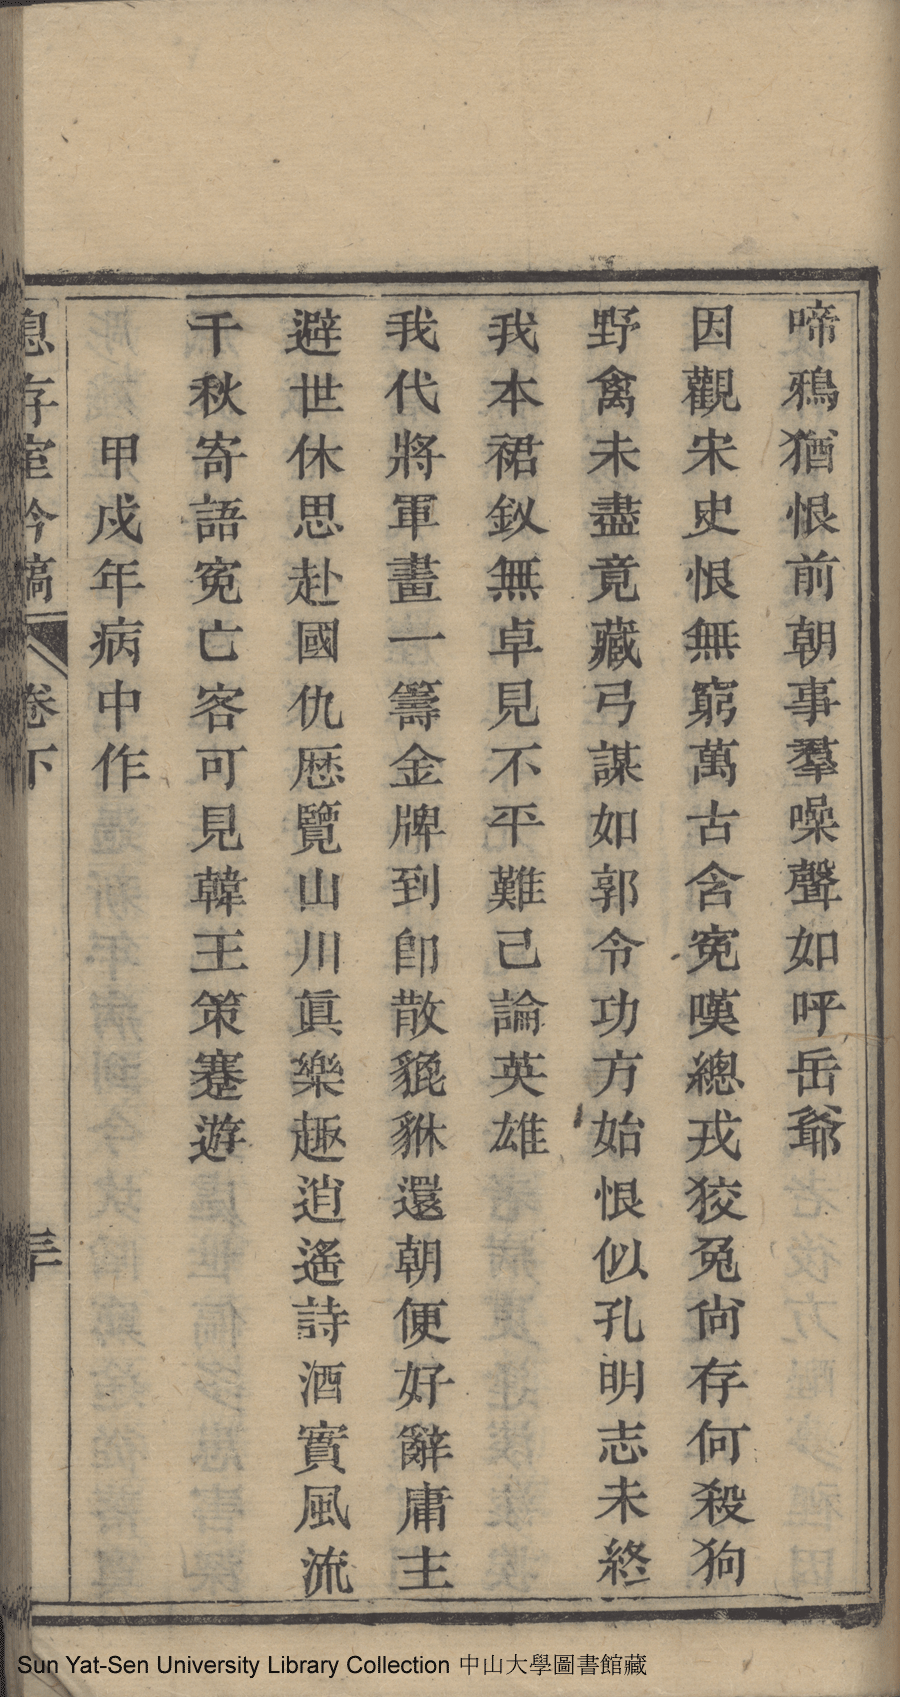 啼鴉猶恨前朝事羣噪聲如呼岳爺
因觀宋史恨無窮萬古含寃嘆總戎狡兔尙存何殺狗
野禽未盡竟藏弓謀如郭令功方始恨似孔明志未終
我本裙釵無卓見不平難已論英雄
我代將軍畫一籌金牌到卽散貔貅還朝便好辭庸主
避世休思赴國仇歴覽山川眞樂趣逍遙詩酒實風流
千秋寄語寃亡客可見韓王策蹇遊
甲戍年病中作
息存室吟稿 卷下 三十
Sun Yat-Sen University Library Collection 中山大學圖書館藏